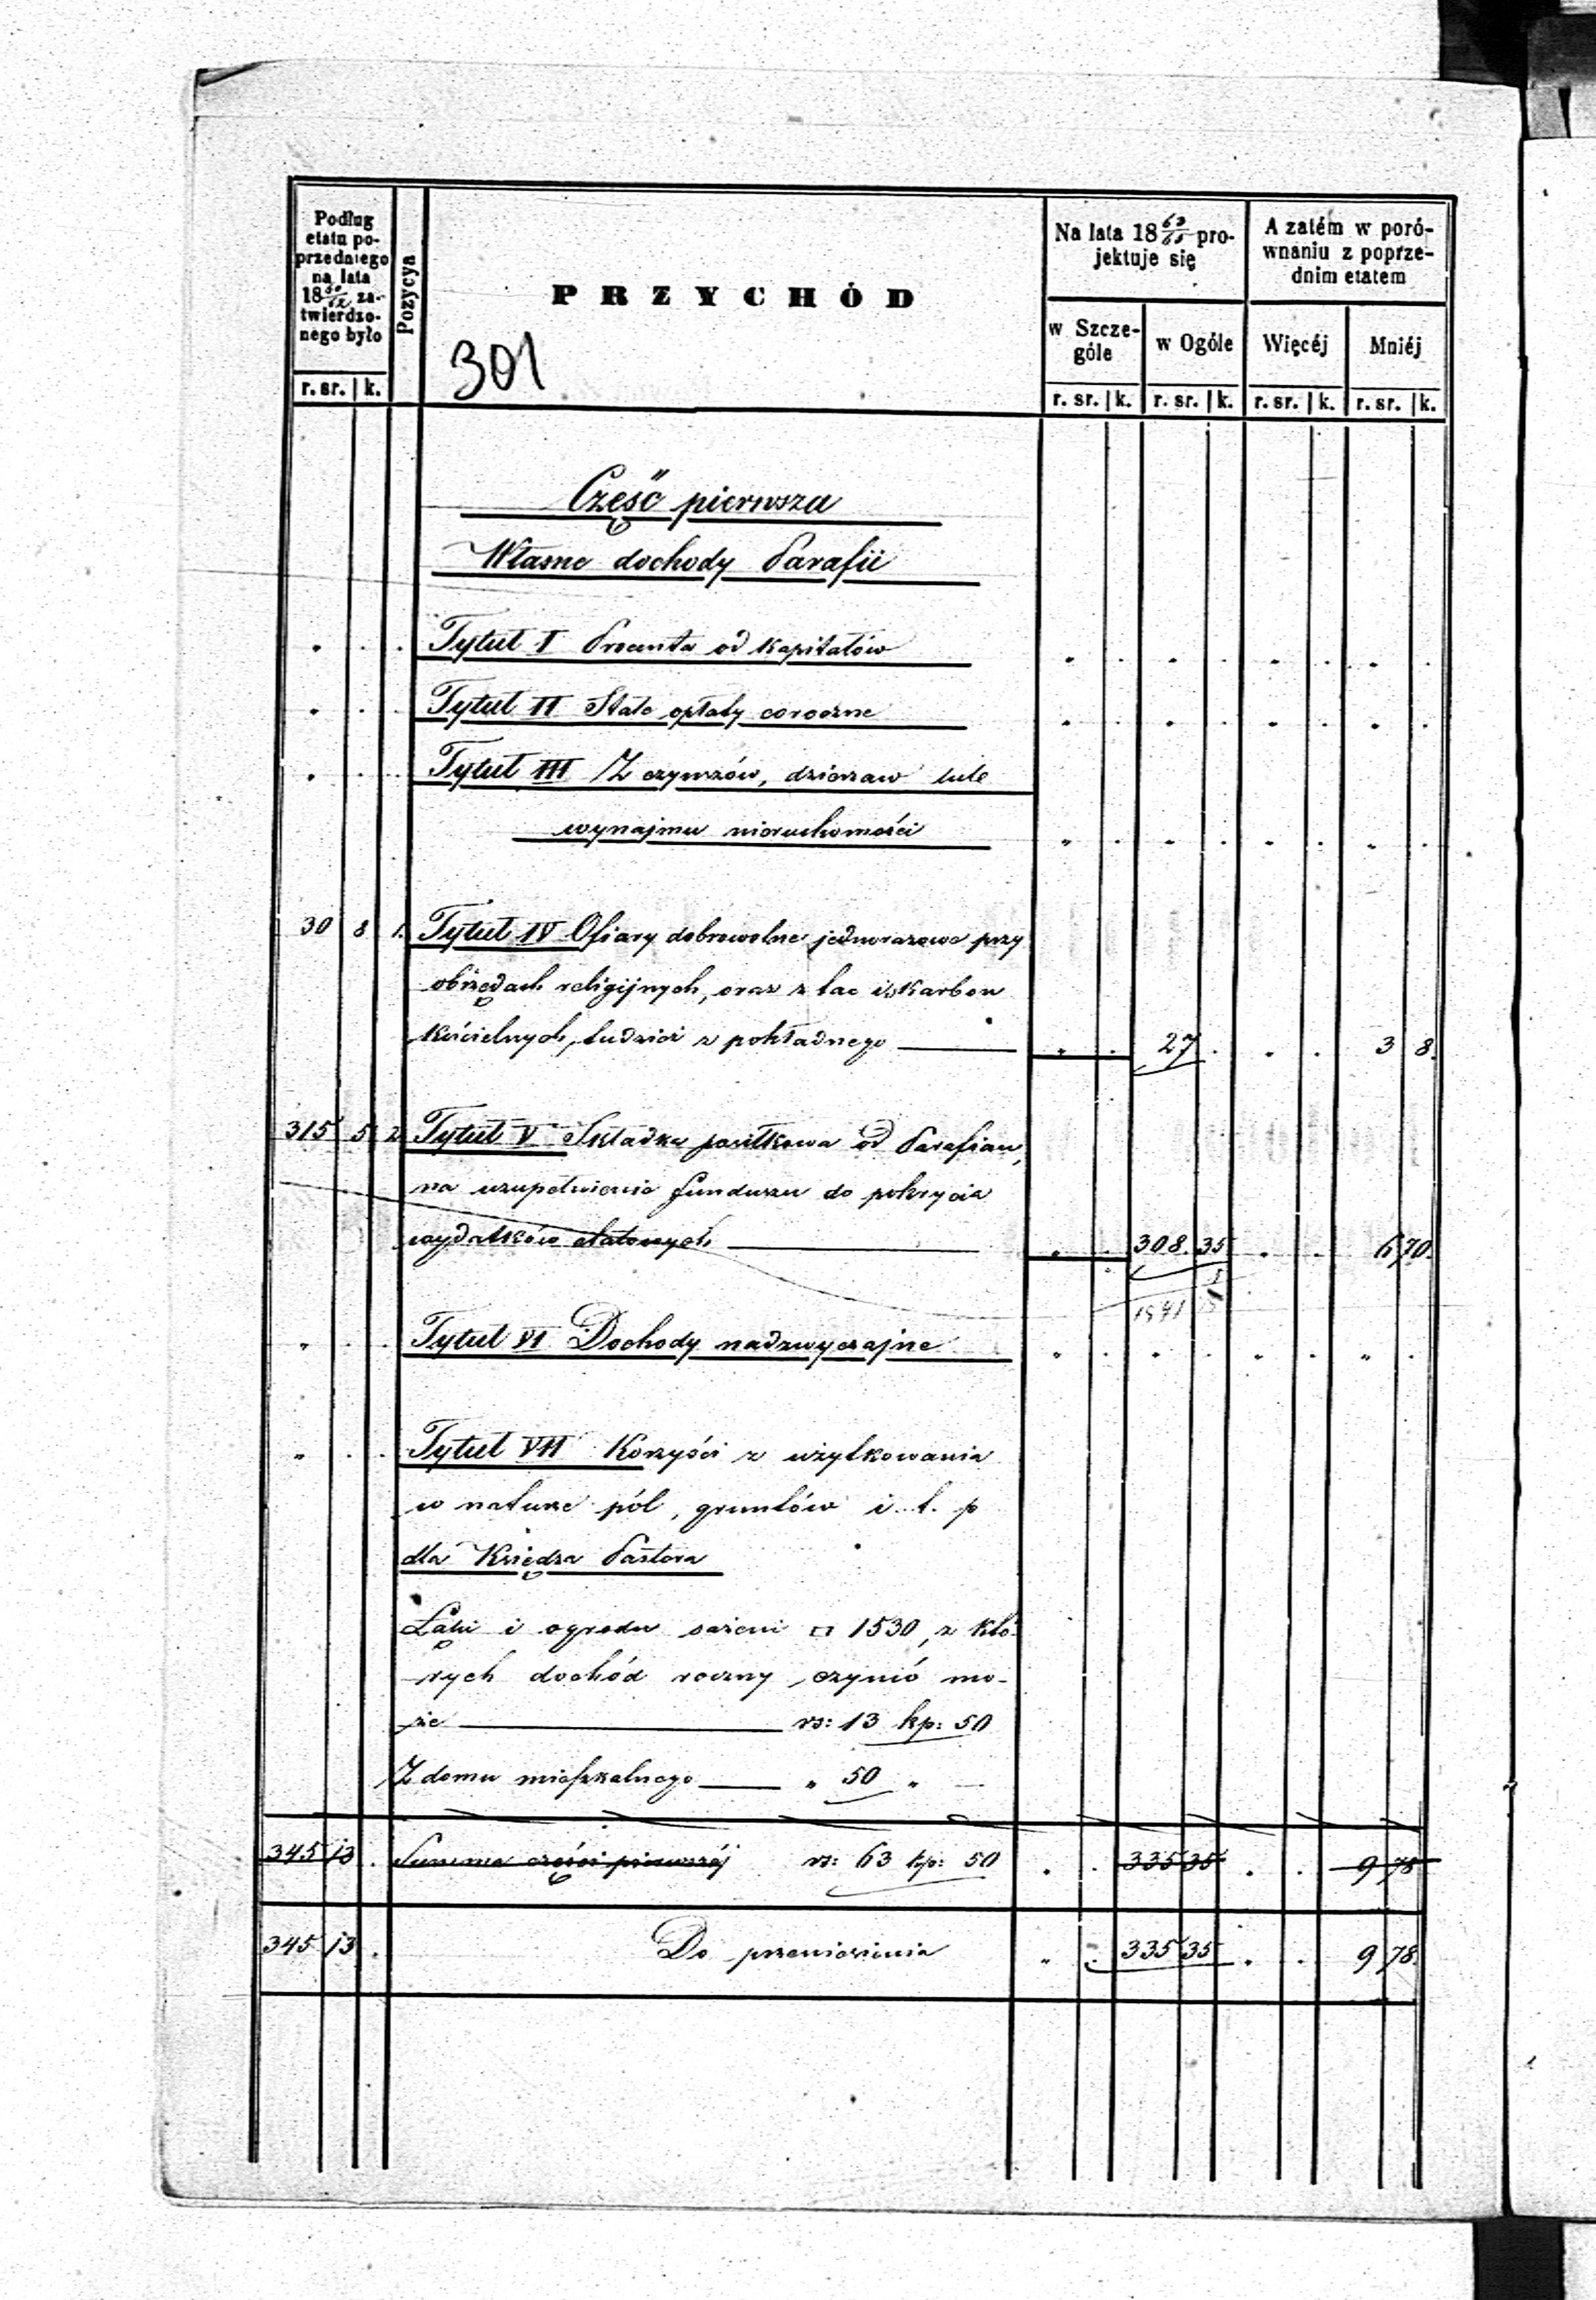 Podług
etatu po-
przedniego
na lata
18 60/62 za-
twierdzo-
nego było
r. sr. k.
Pozycya
PRZYCHÓD
301
Na lata 18 63/65 pro-
jektuje się
w Szcze-
góle
w Ogóle
r. sr. k. r. sr. k.
A zatém w poró-
wnaniu z poprze-
dnim etatem
Więcéj Mniéj
r. sr. k. r. sr. k.
Część pierwsza
Własne dochody Parafii
Tytuł I Procenta od kapitałów
Tytuł II Stałe opłaty coroczne
Tytuł III Z czynszów, dzierzaw lub
wynajmu nieruchomości
30 8 1. Tytuł IV Ofiary dobrowolne jednorazowe przy
obrzędach religijnych, oraz z tac i skarbon
kościelnych, tudzież z pokładnego 27 . 3 8.
315 5 2 Tytuł V Składka posiłkowa od Parafian,
na uzupełnienie funduszu do pokrycia
wydatków etatowych 308. 35 6 70.
Tytuł VI Dochody nadzwyczajne
Tytuł VII Korzyści z użytkowania
w naturze pól, gruntów i. t. p
dla Księdza Pastora
Łąki i ogrodu sążeni □ 1530, z któ-
rych dochód roczny czynić mo-
że rs: 13 kp: 50
Z domu mieszkalnego „ 50 „ —
345 13 . Summa części pierwszéj rs: 63 kp: 50 335 35 9 78
345 13 . Do przeniesienia 335 35 9 78.